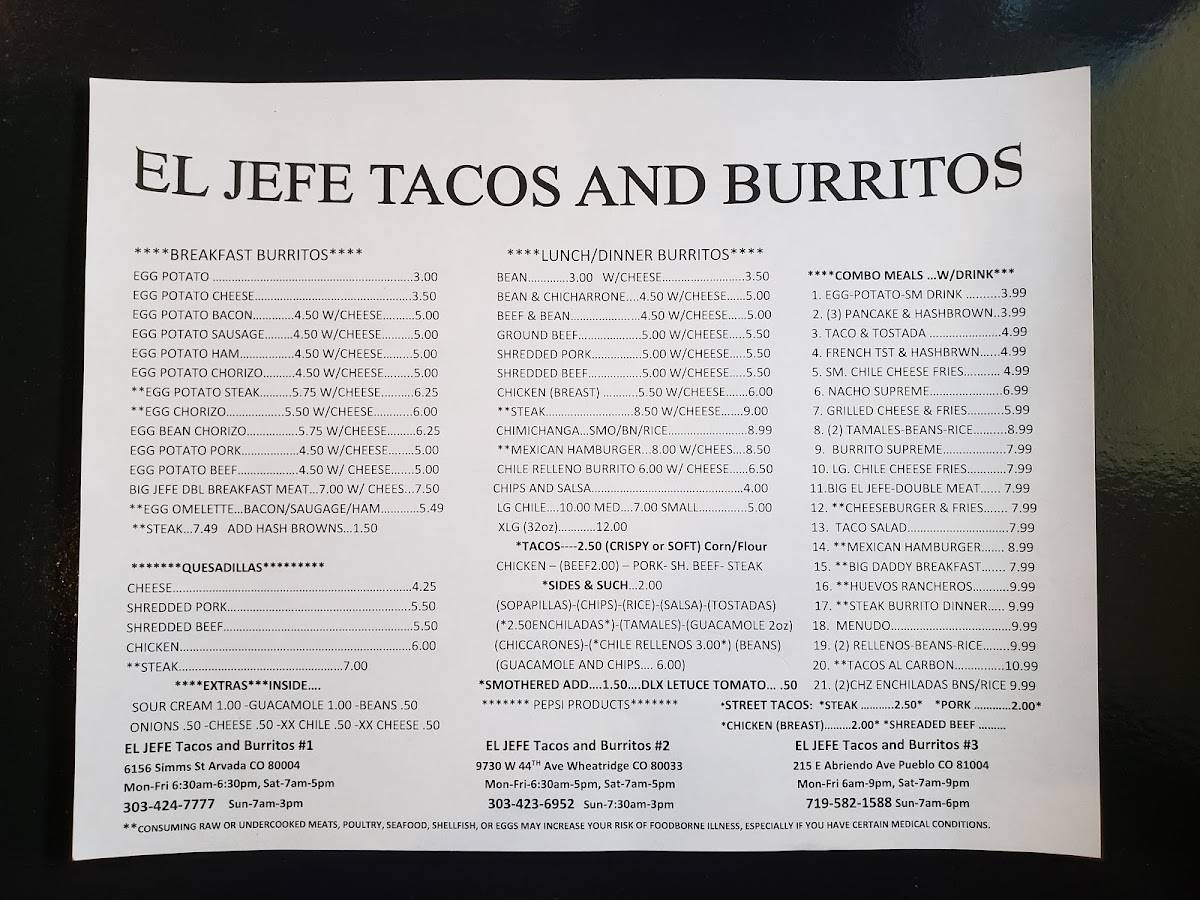 EL JEFE TACOS AND BURRITOS
****BREAKFAST BURRITOS****
EGG POTATO ....................................................3.00
EGG POTATO CHEESE.........................................3.50
EGG POTATO BACON............4.50 W/CHEESE.........5.00
EGG POTATO SAUSAGE........4.50 W/CHEESE.........5.00
EGG POTATO HAM................4.50 W/CHEESE.........5.00
EGG POTATO CHORIZO..........4.50 W/CHEESE.........5.00
**EGG POTATO STEAK..........5.75 W/CHEESE..........6.25
**EGG CHORIZO................5.50 W/CHEESE...........6.00
EGG BEAN CHORIZO................5.75 W/CHEESE........6.25
EGG POTATO PORK................4.50 W/CHEESE........5.00
EGG POTATO BEEF..................4.50 W/ CHEESE.......5.00
BIG JEFE DBL BREAKFAST MEAT...7.00 W/ CHEES...7.50
**EGG OMELETTE...BACON/SAUGAGE/HAM..........5.49
**STEAK...7.49 ADD HASH BROWNS...1.50
*******QUESADILLAS*********
CHEESE...................................................................4.25
SHREDDED PORK....................................................5.50
SHREDDED BEEF.....................................................5.50
CHICKEN.................................................................6.00
**STEAK...............................................7.00
****EXTRAS***INSIDE....
SOUR CREAM 1.00 -GUACAMOLE 1.00 -BEANS .50
ONIONS .50 -CHEESE .50 -XX CHILE .50 -XX CHEESE .50
****LUNCH/DINNER BURRITOS****
BEAN............3.00 W/CHEESE........................3.50
BEAN & CHICHARRONE....4.50 W/CHEESE......5.00
BEEF & BEAN......................4.50 W/CHEESE.....5.00
GROUND BEEF...................5.00 W/CHEESE.....5.50
SHREDDED PORK...............5.00 W/CHEESE.....5.50
SHREDDED BEEF................5.00 W/CHEESE.....5.50
CHICKEN (BREAST) ..........5.50 W/CHEESE.......6.00
**STEAK..........................8.50 W/CHEESE.......9.00
CHIMICHANGA...SMO/BN/RICE.......................8.99
**MEXICAN HAMBURGER...8.00 W/CHEES....8.50
CHILE RELLENO BURRITO 6.00 W/ CHEESE......6.50
CHIPS AND SALSA............................................4.00
LG CHILE....10.00 MED....7.00 SMALL..............5.00
XLG (32oz)...........12.00
*TACOS----2.50 (CRISPY or SOFT) Corn/Flour
CHICKEN – (BEEF2.00) – PORK- SH. BEEF- STEAK
*SIDES & SUCH...2.00
(SOPAPILLAS)-(CHIPS)-(RICE)-(SALSA)-(TOSTADAS)
(*2.50ENCHILADAS*)-(TAMALES)-(GUACAMOLE 2oz)
(CHICCARONES)-(*CHILE RELLENOS 3.00*) (BEANS)
(GUACAMOLE AND CHIPS.... 6.00)
*SMOTHERED ADD....1.50....DLX LETUCE TOMATO... .50
******* PEPSI PRODUCTS*******
****COMBO MEALS ...W/DRINK***
1. EGG-POTATO-SM DRINK ..........3.99
2. (3) PANCAKE & HASHBROWN..3.99
3. TACO & TOSTADA .....................4.99
4. FRENCH TST & HASHBRWN......4.99
5. SM. CHILE CHEESE FRIES......... 4.99
6. NACHO SUPREME.....................6.99
7. GRILLED CHEESE & FRIES..........5.99
8. (2) TAMALES-BEANS-RICE.........8.99
9. BURRITO SUPREME..................7.99
10. LG. CHILE CHEESE FRIES...........7.99
11.BIG EL JEFE-DOUBLE MEAT...... 7.99
12. **CHEESEBURGER & FRIES....... 7.99
13. TACO SALAD.............................7.99
14. **MEXICAN HAMBURGER....... 8.99
15. **BIG DADDY BREAKFAST....... 7.99
16. **HUEVOS RANCHEROS...........9.99
17. **STEAK BURRITO DINNER..... 9.99
18. MENUDO...................................9.99
19. (2) RELLENOS-BEANS-RICE........9.99
20. **TACOS AL CARBON..............10.99
21. (2)CHZ ENCHILADAS BNS/RICE 9.99
*STREET TACOS: *STEAK ...........2.50* *PORK ...........2.00*
*CHICKEN (BREAST)........2.00* *SHREADED BEEF .........
EL JEFE Tacos and Burritos #1
6156 Simms St Arvada CO 80004
Mon-Fri 6:30am-6:30pm, Sat-7am-5pm
303-424-7777 Sun-7am-3pm
EL JEFE Tacos and Burritos #2
9730 W 44TH Ave Wheatridge CO 80033
Mon-Fri-6:30am-5pm, Sat-7am-5pm
303-423-6952 Sun-7:30am-3pm
EL JEFE Tacos and Burritos #3
215 E Abriendo Ave Pueblo CO 81004
Mon-Fri 6am-9pm, Sat-7am-9pm
719-582-1588 Sun-7am-6pm
**CONSUMING RAW OR UNDERCOOKED MEATS, POULTRY, SEAFOOD, SHELLFISH, OR EGGS MAY INCREASE YOUR RISK OF FOODBORNE ILLNESS, ESPECIALLY IF YOU HAVE CERTAIN MEDICAL CONDITIONS.